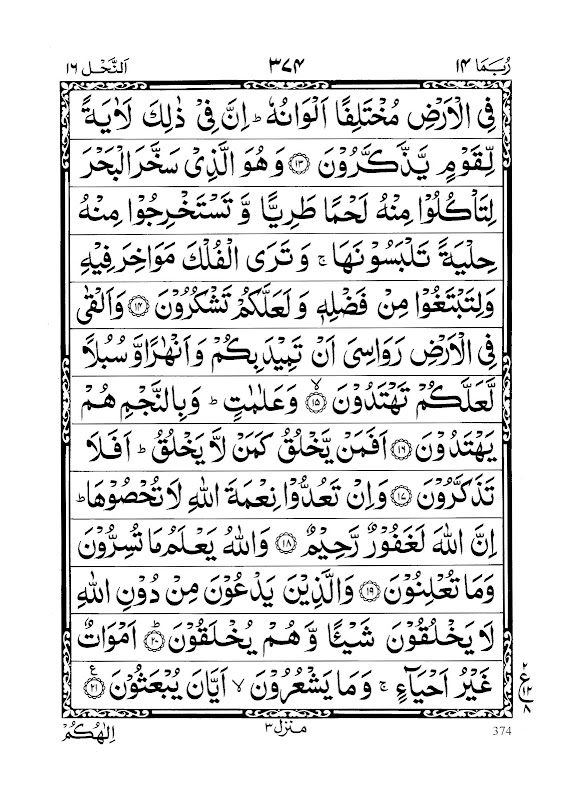 رُبَمَا ١٤ ٣٧٤ اَلنَّحْل ١٦
فِي الْاَرْضِ مُخْتَلِفًا اَلْوَانُهٗ ؕ اِنَّ فِيْ ذٰلِكَ لَاٰيَةً
لِّقَوْمٍ يَّذَّكَّرُوْنَ ۝۱۳ وَهُوَ الَّذِيْ سَخَّرَ الْبَحْرَ
لِتَاْكُلُوْا مِنْهُ لَحْمًا طَرِيًّا وَّ تَسْتَخْرِجُوْا مِنْهُ
حِلْيَةً تَلْبَسُوْنَهَا ۚ وَ تَرَى الْفُلْكَ مَوَاخِرَ فِيْهِ
وَلِتَبْتَغُوْا مِنْ فَضْلِهٖ وَ لَعَلَّكُمْ تَشْكُرُوْنَ ۝۱۴ وَاَلْقٰى
فِي الْاَرْضِ رَوَاسِيَ اَنْ تَمِيْدَ بِكُمْ وَ اَنْهٰرًا وَّ سُبُلًا
لَّعَلَّكُمْ تَهْتَدُوْنَ ۝۱۵ۙ وَعَلٰمٰتٍ ؕ وَبِالنَّجْمِ هُمْ
يَهْتَدُوْنَ ۝۱۶ اَفَمَنْ يَّخْلُقُ كَمَنْ لَّا يَخْلُقُ ؕ اَفَلَا
تَذَكَّرُوْنَ ۝۱۷ وَاِنْ تَعُدُّوْا نِعْمَةَ اللّٰهِ لَا تُحْصُوْهَا ؕ
اِنَّ اللّٰهَ لَغَفُوْرٌ رَّحِيْمٌ ۝۱۸ وَاللّٰهُ يَعْلَمُ مَا تُسِرُّوْنَ
وَمَا تُعْلِنُوْنَ ۝۱۹ وَالَّذِيْنَ يَدْعُوْنَ مِنْ دُوْنِ اللّٰهِ
لَا يَخْلُقُوْنَ شَيْئًا وَّ هُمْ يُخْلَقُوْنَ ۝۲۰ؕ اَمْوَاتٌ
غَيْرُ اَحْيَآءٍ ۚ وَ مَا يَشْعُرُوْنَ ۙ اَيَّانَ يُبْعَثُوْنَ ۝۲۱ع
۲ ع ۱۲ ۸
374 منزل ٣ اِلٰهُكُمْ